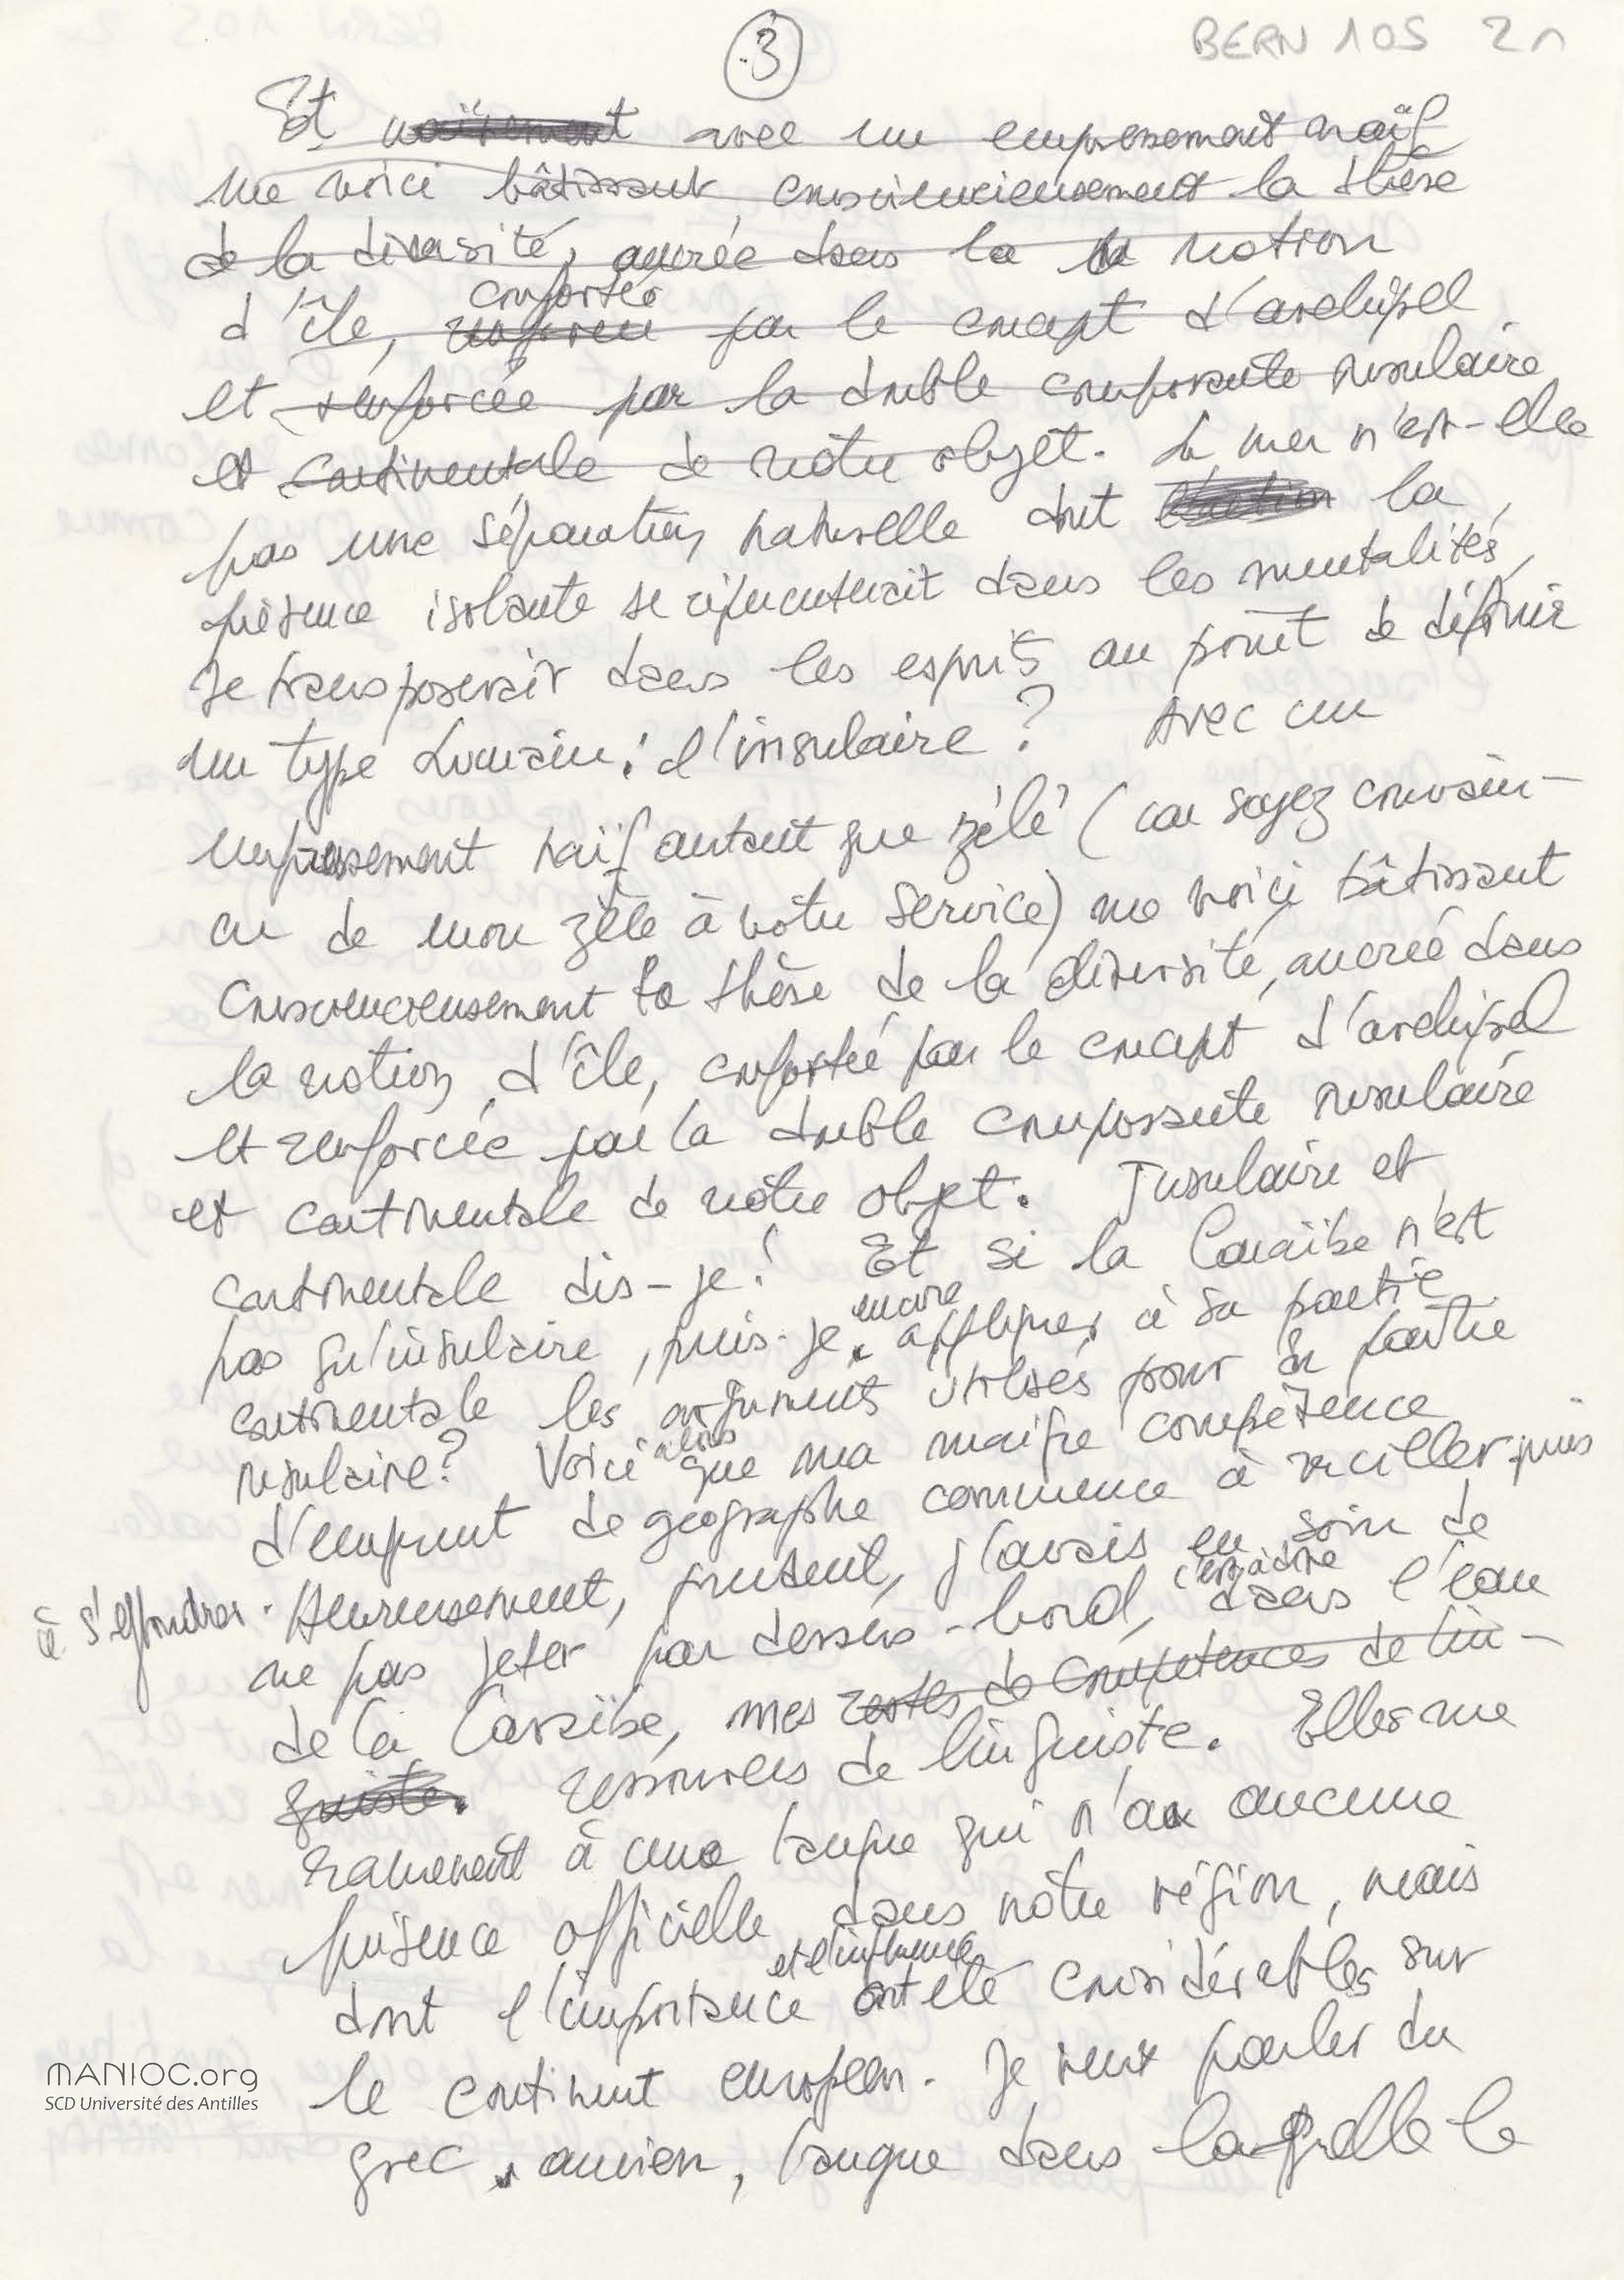 3
BERN 105 2r
Et naïvement avec un empressement naïf
me voici bâtissant consciencieusement la thèse
de la diversité, ancrée dans la la notion
confortée
d'île, renforcée par le concept d'archipel
et renforcée par la double composante insulaire
et continentale de notre objet. La mer n'est-elle
pas une séparation naturelle dont la
présence isolante se répercuterait dans les mentalités,
se transposerait dans les esprits au point de définir
un type humain : l'insulaire ? Avec un
empressement naïf autant que zélé (car soyez convain-
cu de mon zèle à votre service) me voici bâtissant
consciencieusement la thèse de la diversité, ancrée dans
la notion d'île, confortée par le concept d'archipel
et renforcée par la double composante insulaire
et continentale de notre objet. Insulaire et
continentale dis-je ! Et si la Caraïbe n'est
encore
pas qu'insulaire, puis-je appliquer à sa partie
continentale les arguments utilisés pour sa partie
alors
insulaire ? Voici que ma maigre compétence
d'emprunt de géographe commence à vaciller puis
à s'effondrer. Heureusement, prudent, j'avais eu soin de
c'est à dire
ne pas jeter par dessus-bord, dans l'eau
de la Caraïbe, mes restes de compétences de lin-
guiste. ressources de linguiste. Elles me
ramènent à une langue qui n'a aucune
présence officielle dans notre région, mais
et l'influence
dont l'importance ont été considérables sur
le continent européen. Je veux parler du
grec ancien, langue dans laquelle le
MANIOC.org
SCD Université des Antilles